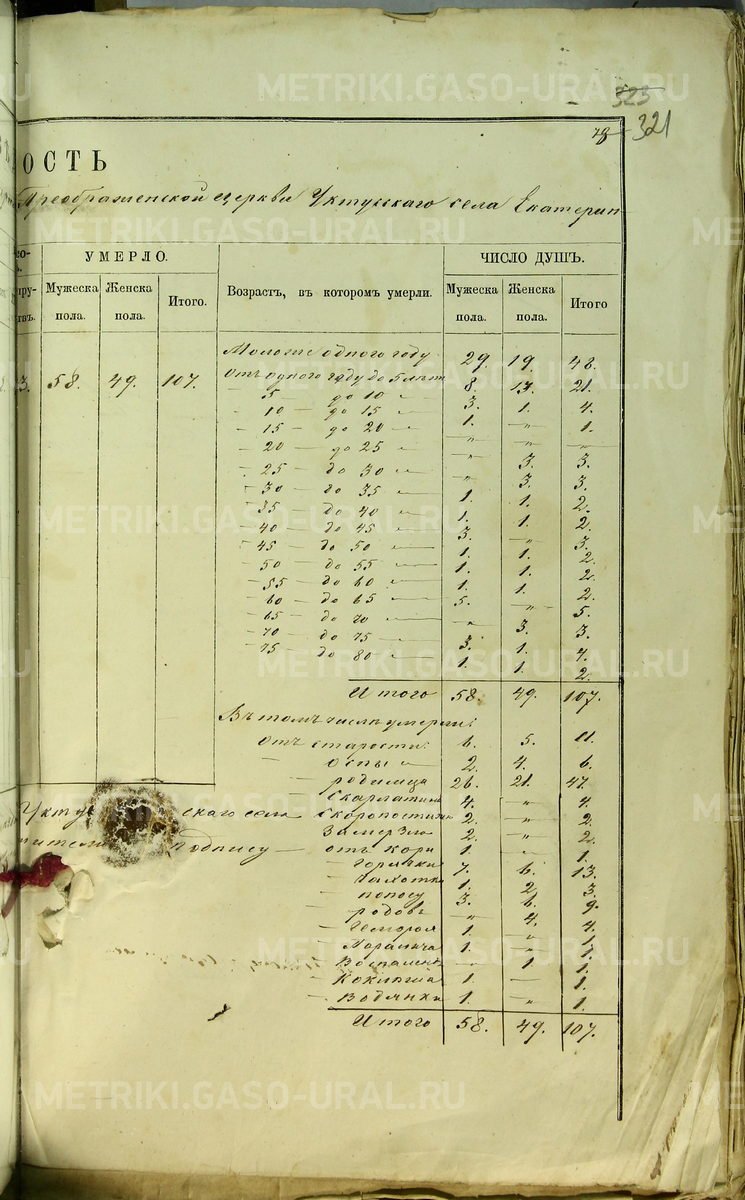 323
78 321
ОСТЬ
Преображенской церкви Уктусскаго села Екатерин
УМЕРЛО. ЧИСЛО ДУШЪ.
Мужеска пола. Женска пола. Итого. Возрастъ, въ которомъ умерли. Мужеска пола. Женска пола. Итого
Моложе одного году 29. 19. 48.
3. 58. 49. 107. отъ одного году до 5 лѣтъ 8. 13. 21.
" 5 — до 10 " 3. 1. 4.
" 10 — до 15 " 1. " 1.
" 15 — до 20 " " " "
" 20 — до 25 " " 3. 3.
" 25 — до 30 " " 3. 3.
" 30 — до 35 " 1. 1. 2.
" 35 — до 40 " 1. 1. 2.
" 40 — до 45 " 3. " 3.
" 45 — до 50 " 1. 1. 2.
" 50 — до 55 " 1. 1. 2.
" 55 — до 60 " 1. 1. 2.
" 60 — до 65 " 5. " 5.
" 65 — до 70 " " 3. 3.
" 70 — до 75 " 3. 1. 4.
" 75 — до 80 " 1. 1. 2.
Итого 58. 49. 107.
Въ томъ числѣ умерли:
отъ старости: 6. 5. 11.
— оспы " 2. 4. 6.
— родимца 26. 21. 47.
Скарлатины 4. " 4.
Укту скаго села Скоропостижно 2. " 2.
Замерзло 2. " 2.
подпису — отъ кори 1. " 1.
— горячки 7. 6. 13.
— чахотки 1. 2. 3.
— поносу 3. 6. 9.
— родовъ " 4. 4.
— Геморроя 1. " 1.
— Паралича 1. " 1.
— Воспаленія — 1 1.
— Коклюша 1. — 1.
— Водянки 1. " 1.
Итого 58. 49. 107.
METRIKI.GASO-URAL.RU
METRIKI.GASO-URAL.RU
METRIKI.GASO-URAL.RU
METRIKI.GASO-URAL.RU
METRIKI.GASO-URAL.RU
METRIKI.GASO-URAL.RU
METRIKI.GASO-URAL.RU
METRIKI.GASO-URAL.RU